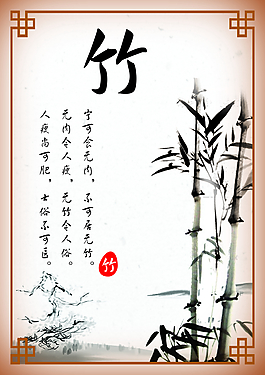 竹
宁可食无肉，不可居无竹。
无肉令人瘦，无竹令人俗。
人瘦尚可肥，士俗不可医。
竹